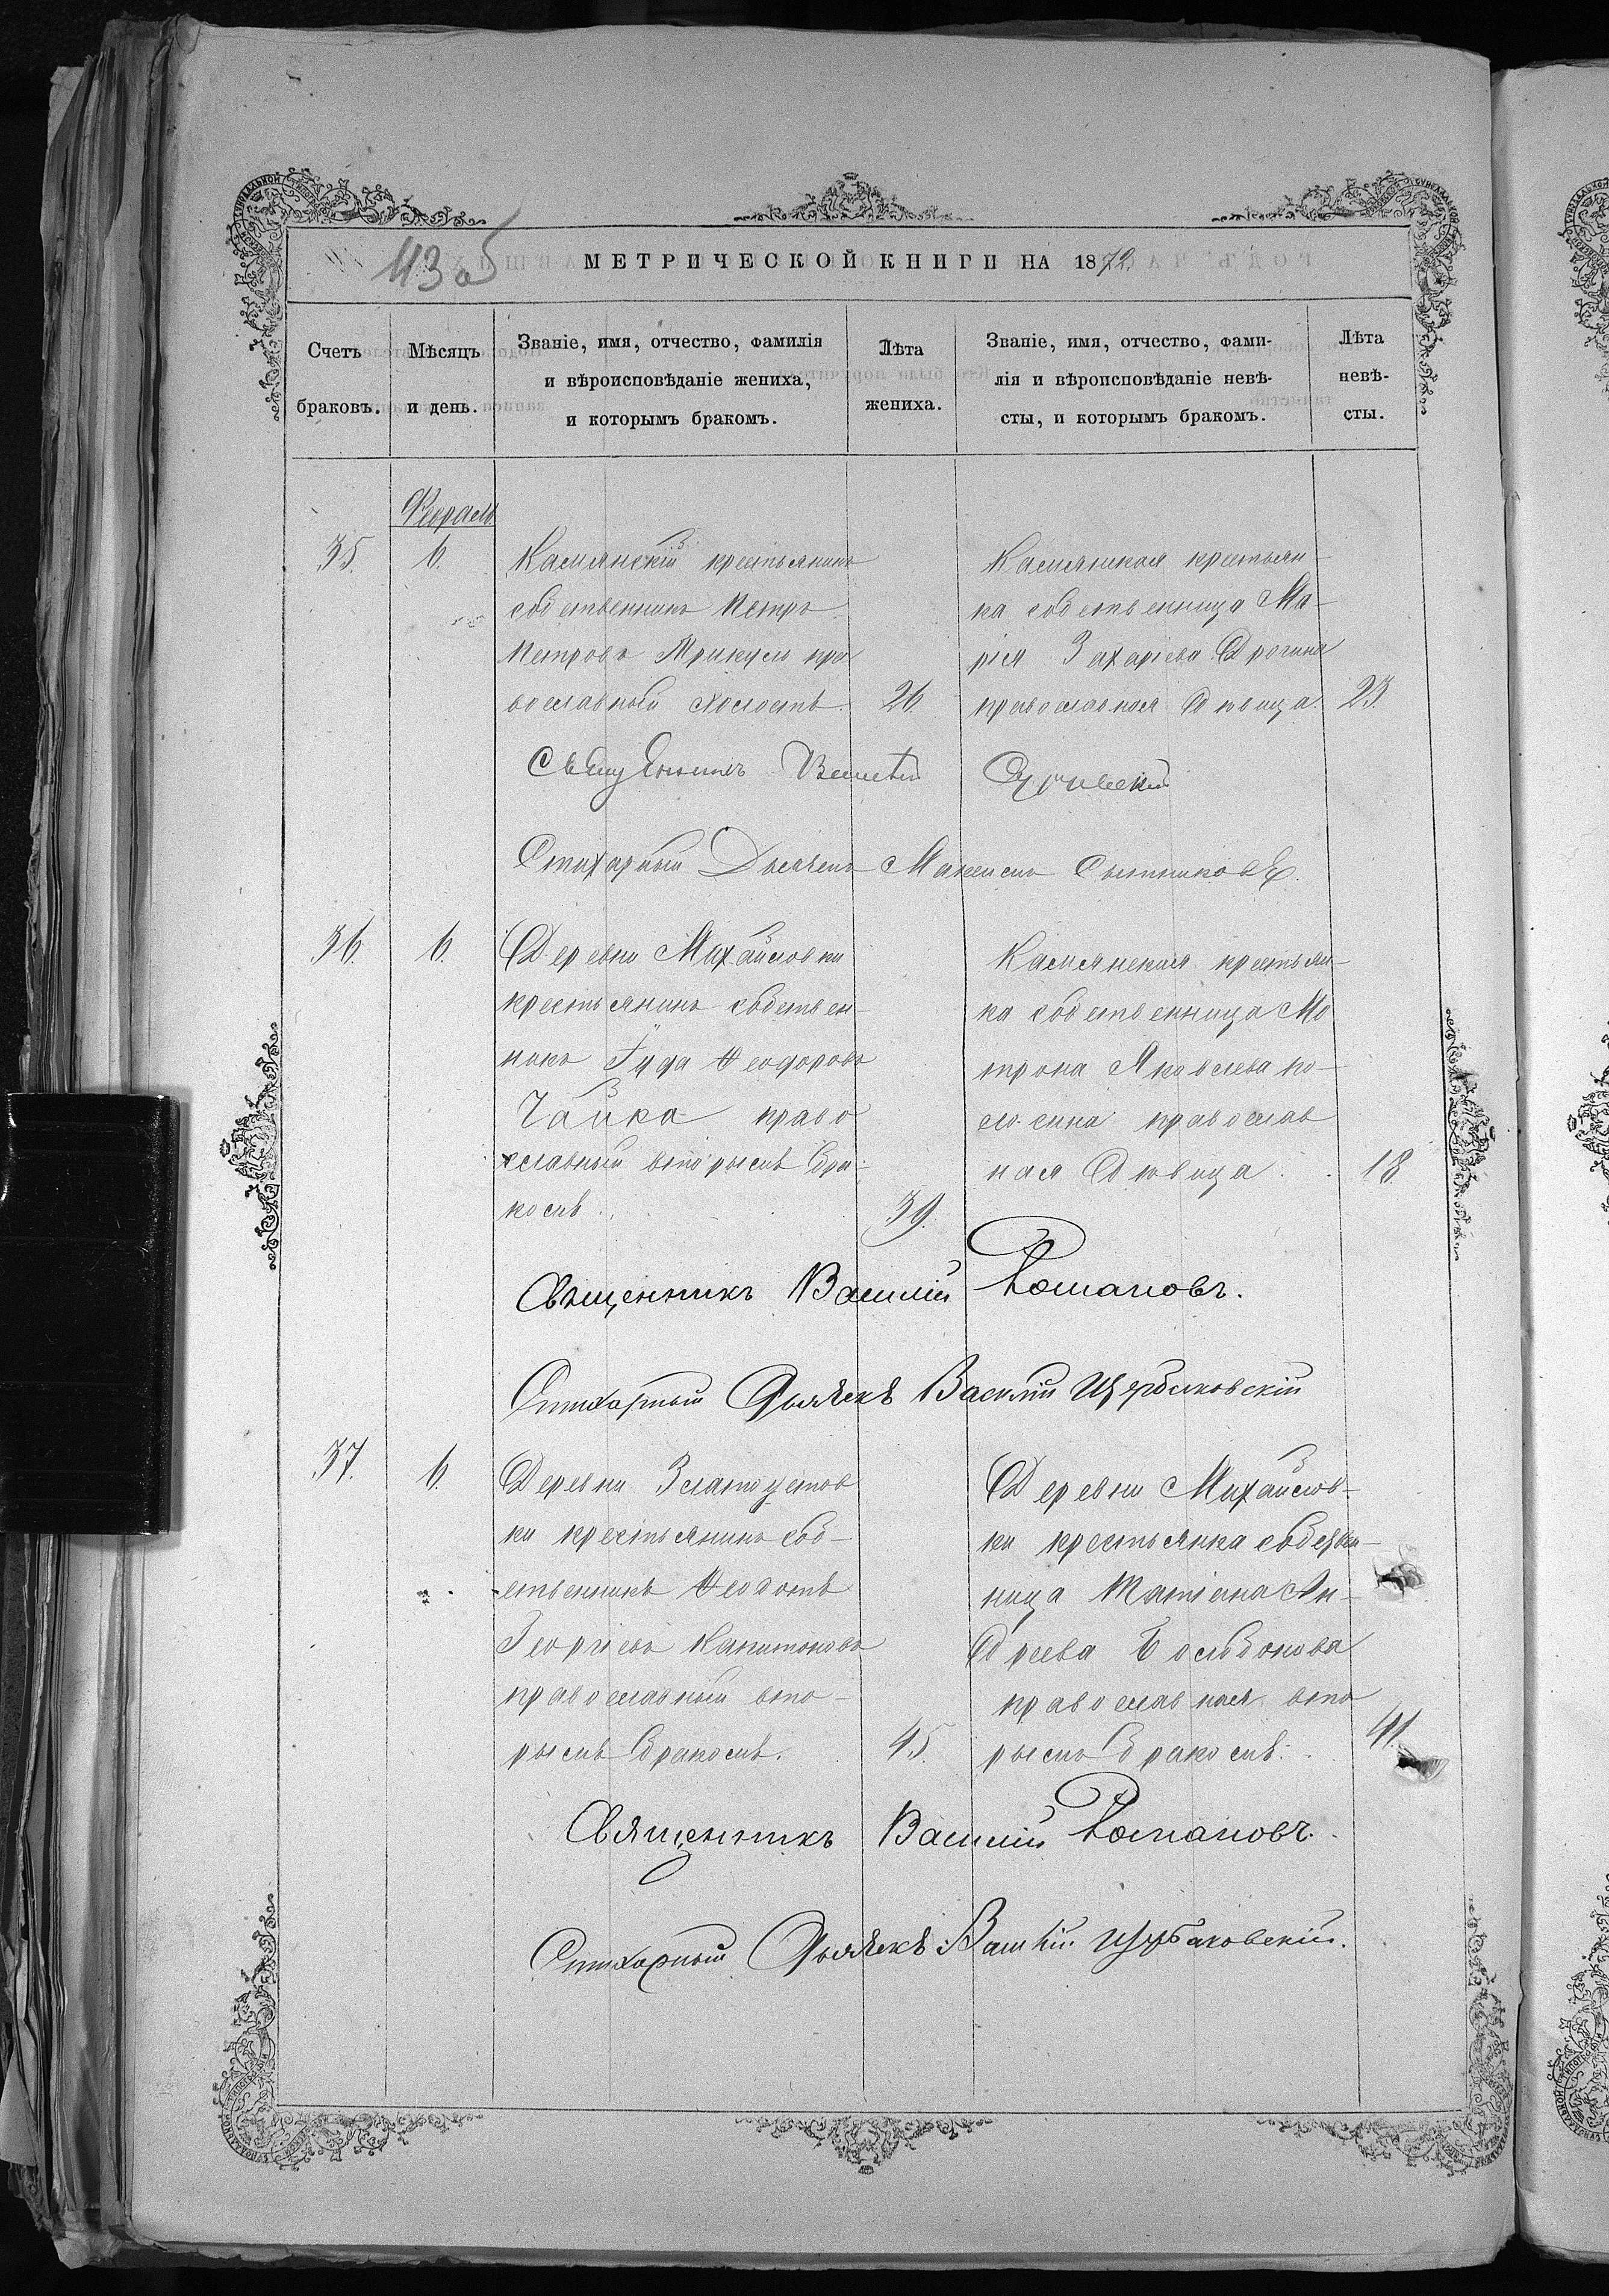 43 об
МЕТРИЧЕСКОЙ КНИГИ НА 1872
Счетъ браковъ.
Мѣсяцъ и день.
Званіе, имя, отчество, фамилія
и вѣроисповѣданіе жениха,
и которымъ бракомъ.
Лѣта жениха.
Званіе, имя, отчество, фами-
лія и вѣроисповѣданіе невѣ-
сты, и которымъ бракомъ.
Лѣта невѣ-
сты.
Февраль
35.
6.
Камянскій крестьянинъ
собственникъ Петръ
Петровъ Прикуль пра
вославный холостъ.
26.
Камянская крестьян-
ка собственница Ма-
рія Захаріева Дрогина
православная Дѣвица.
23.
Священникъ Василій
Стихарный Дьячекъ Максимъ Сытниковъ.
36.
6.
Деревни Михайловки
крестьянинъ собствен-
никъ Іуда Ѳеодоровъ
Чайка право
славный вторымъ бра-
комъ.
39.
Камянская крестьян-
ка собственница Ма
трона Яковлева
православ
ная Дѣвица.
18
Священникъ Василій Романовъ.
Стихарный Дьячекъ Василій Щербаковскій
37.
6.
Деревни Златоустов
ки крестьянинъ соб-
ственникъ Ѳеодотъ
Георгіевъ Капитоновъ
православный вто-
рымъ бракомъ.
45.
Деревни Михайлов-
ки крестьянка собствен-
ница Татіана Ан-
дреева
православная вто
рымъ бракомъ.
41.
Священникъ Василій Романовъ.
Стихарный Дьячекъ Василій Щербаковскій.